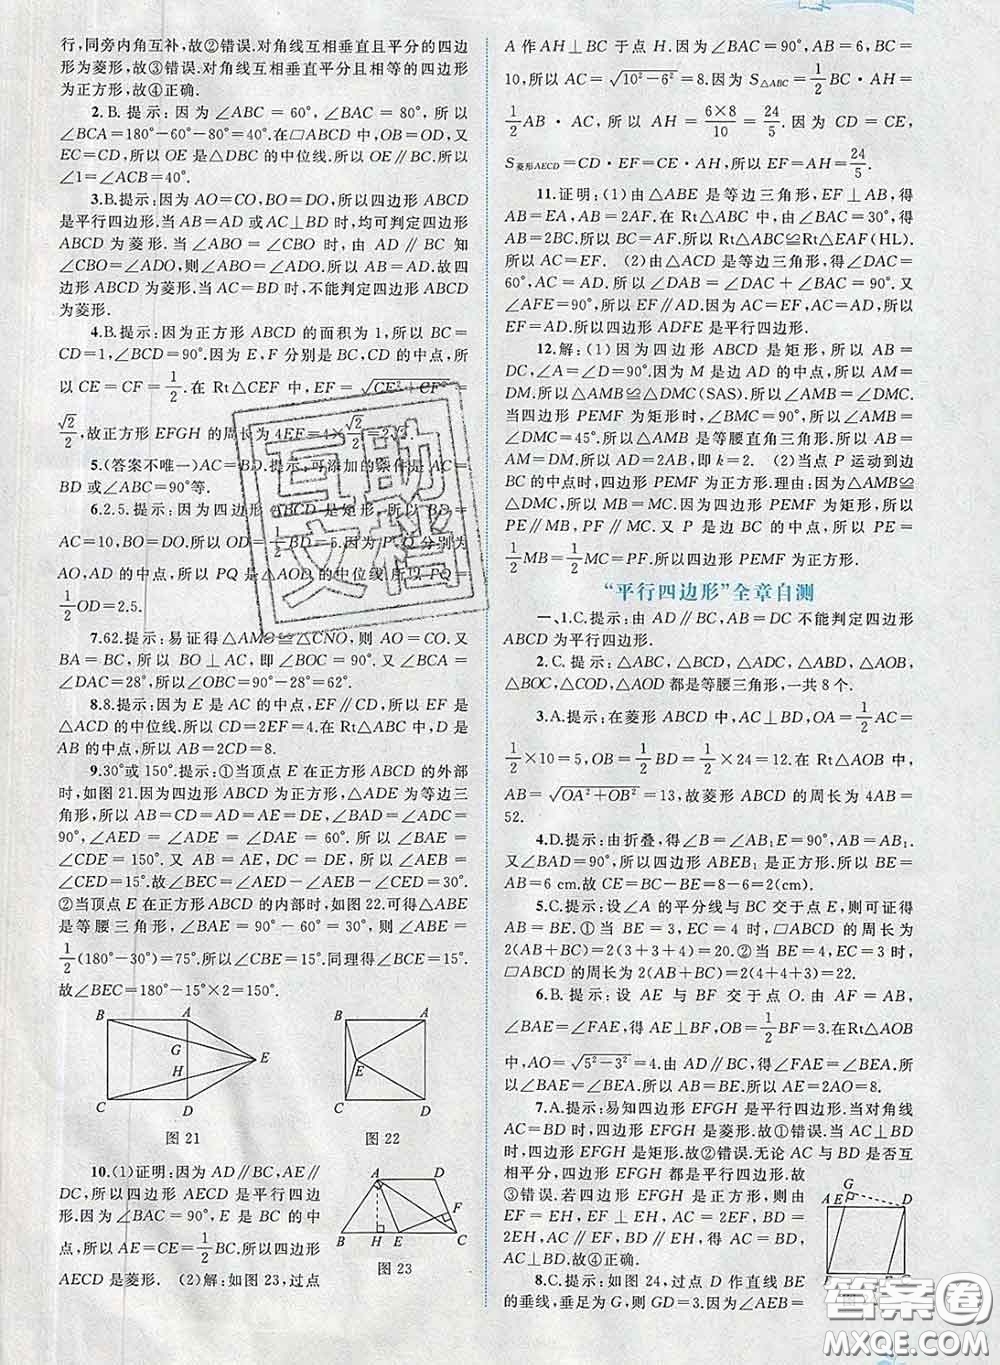 行,同旁内角互补,故②错误.对角线互相垂直且平分的四边
形为菱形,故③错误.对角线互相垂直平分且相等的四边形
为正方形,故④正确.
2.B.提示:因为∠ABC=60°,∠BAC=80°,所以
∠BCA=180°-60°-80°=40°.在□ABCD中,OB=OD,又
EC=CD,所以OE是△DBC的中位线.所以OE∥BC.所以
∠1=∠ACB=40°.
3.B.提示:因为AO=CO,BO=DO,所以四边形ABCD
是平行四边形.当AB=AD或AC⊥BD时,均可判定四边形
ABCD为菱形.当∠ABO=∠CBO时,由AD∥BC知
∠CBO=∠ADO,则∠ABO=∠ADO.所以AB=AD.故四
边形ABCD为菱形.当AC=BD时,不能判定四边形ABCD
为菱形.
4.B.提示:因为正方形ABCD的面积为1,所以BC=
CD=1,∠BCD=90°.因为E,F分别是BC,CD的中点,所
以CE=CF=1/2.在Rt△CEF中,EF=√(CE²+CF²)=
√2/2,故正方形EFGH的周长为4EF=4×√2/2=2√2.
5.(答案不唯一)AC=BD.提示:可添加的条件是AC=
BD或∠ABC=90°等.
6.2.5.提示:因为四边形ABCD是矩形,所以BD=
AC=10,BO=DO.所以OD=1/2BD=5.因为P,Q分别为
AO,AD的中点,所以PQ是△AOD的中位线.所以PQ=
1/2OD=2.5.
7.62.提示:易证得△AMO≌△CNO,则AO=CO.又
BA=BC,所以BO⊥AC,即∠BOC=90°.因为∠BCA=
∠DAC=28°,所以∠OBC=90°-28°=62°.
8.8.提示:因为E是AC的中点,EF∥CD,所以EF是
△ACD的中位线.所以CD=2EF=4.在Rt△ABC中,D是
AB的中点,所以AB=2CD=8.
9.30°或150°.提示:①当顶点E在正方形ABCD的外部
时,如图21.因为四边形ABCD为正方形,△ADE为等边三角
形,所以AB=CD=AD=AE=DE,∠BAD=∠ADC=
90°,∠AED=∠ADE=∠DAE=60°.所以∠BAE=
∠CDE=150°.又AB=AE,DC=DE,所以∠AEB=
∠CED=15°.故∠BEC=∠AED-∠AEB-∠CED=30°.
②当顶点E在正方形ABCD的内部时,如图22.可得△ABE
为等腰三角形,∠BAE=90°-60°=30°,则∠ABE=
1/2(180°-30°)=75°.所以∠CBE=15°.同理得∠BCE=15°.
故∠BEC=180°-15°×2=150°.
B A G H E C D
图21
B A E C D
图22
10.(1)证明:因为AD∥BC,AE∥
DC,所以四边形AECD是平行四边
形.因为∠BAC=90°,E是BC的中
点,所以AE=CE=1/2BC.所以四边形
AECD是菱形. (2)解:如图23,过点
A D F B H E C
图23
A作AH⊥BC于点H.因为∠BAC=90°,AB=6,BC=
10,所以AC=√(10²-6²)=8.因为S△ABC=1/2BC·AH=
1/2AB·AC,所以AH=6×8/10=24/5.因为CD=CE,
S菱形AECD=CD·EF=CE·AH,所以EF=AH=24/5.
11.证明:(1)由△ABE是等边三角形,EF⊥AB,得
AB=EA,AB=2AF.在Rt△ABC中,由∠BAC=30°,得
AB=2BC.所以BC=AF.所以Rt△ABC≌Rt△EAF(HL).
所以AC=EF. (2)由△ACD是等边三角形,得∠DAC=
60°,AC=AD.所以∠DAB=∠DAC+∠BAC=90°.又
∠AFE=90°,所以EF∥AD.因为AC=EF,AC=AD,所以
EF=AD.所以四边形ADFE是平行四边形.
12.解:(1)因为四边形ABCD是矩形,所以AB=
DC,∠A=∠D=90°.因为M是边AD的中点,所以AM=
DM.所以△AMB≌△DMC(SAS).所以∠AMB=∠DMC.
当四边形PEMF为矩形时,∠BMC=90°,所以∠AMB=
∠DMC=45°.所以△AMB是等腰直角三角形.所以AM=
AB.所以AD=2AB,即k=2. (2)当点P运动到边
BC的中点时,四边形PEMF为正方形.理由:因为△AMB≌
△DMC,所以MB=MC.因为四边形PEMF为矩形,所以
PE∥MB,PF∥MC.又P是边BC的中点,所以PE=
1/2MB=1/2MC=PF.所以四边形PEMF为正方形.
“平行四边形”全章自测
一、1.C.提示:由AD∥BC,AB=DC不能判定四边形
ABCD为平行四边形.
2.C.提示:△ABC,△BCD,△ADC,△ABD,△AOB,
△BOC,△COD,△AOD都是等腰三角形,一共8个.
3.A.提示:在菱形ABCD中,AC⊥BD,OA=1/2AC=
1/2×10=5,OB=1/2BD=1/2×24=12.在Rt△AOB中,
AB=√(OA²+OB²)=13,故菱形ABCD的周长为4AB=
52.
4.D.提示:由折叠,得∠B=∠AB₁E=90°,AB=AB₁.
又∠BAD=90°,所以四边形ABEB₁是正方形.所以BE=
AB=6 cm.故CE=BC-BE=8-6=2(cm).
5.C.提示:设∠A的平分线与BC交于点E,则可证得
AB=BE.①当BE=3,EC=4时,□ABCD的周长为
2(AB+BC)=2(3+3+4)=20.②当BE=4,EC=3时,
□ABCD的周长为2(AB+BC)=2(4+4+3)=22.
6.B.提示:设AE与BF交于点O.由AF=AB,
∠BAE=∠FAE,得AE⊥BF,OB=1/2BF=3.在Rt△AOB
中,AO=√(5²-3²)=4.由AD∥BC,得∠FAE=∠BEA.所
以∠BAE=∠BEA.所以AB=BE.所以AE=2AO=8.
7.A.提示:易知四边形EFGH是平行四边形.当对角线
AC=BD时,四边形EFGH是菱形.故①错误.当AC⊥BD
时,四边形EFGH是矩形.故②错误.无论AC与BD是否互
相平分,四边形EFGH都是平行四边形.故
③错误.若四边形EFGH是正方形,则由
EF=EH,EF⊥EH,AC=2EF,BD=
2EH,得AC=BD,
AC⊥BD.故④正确.
8.C.提示:如图24,过点D作直线BE
的垂线,垂足为G,则GD=3.因为∠AEB=
G A E D B
互助文档
答案圈
MXQE.COM